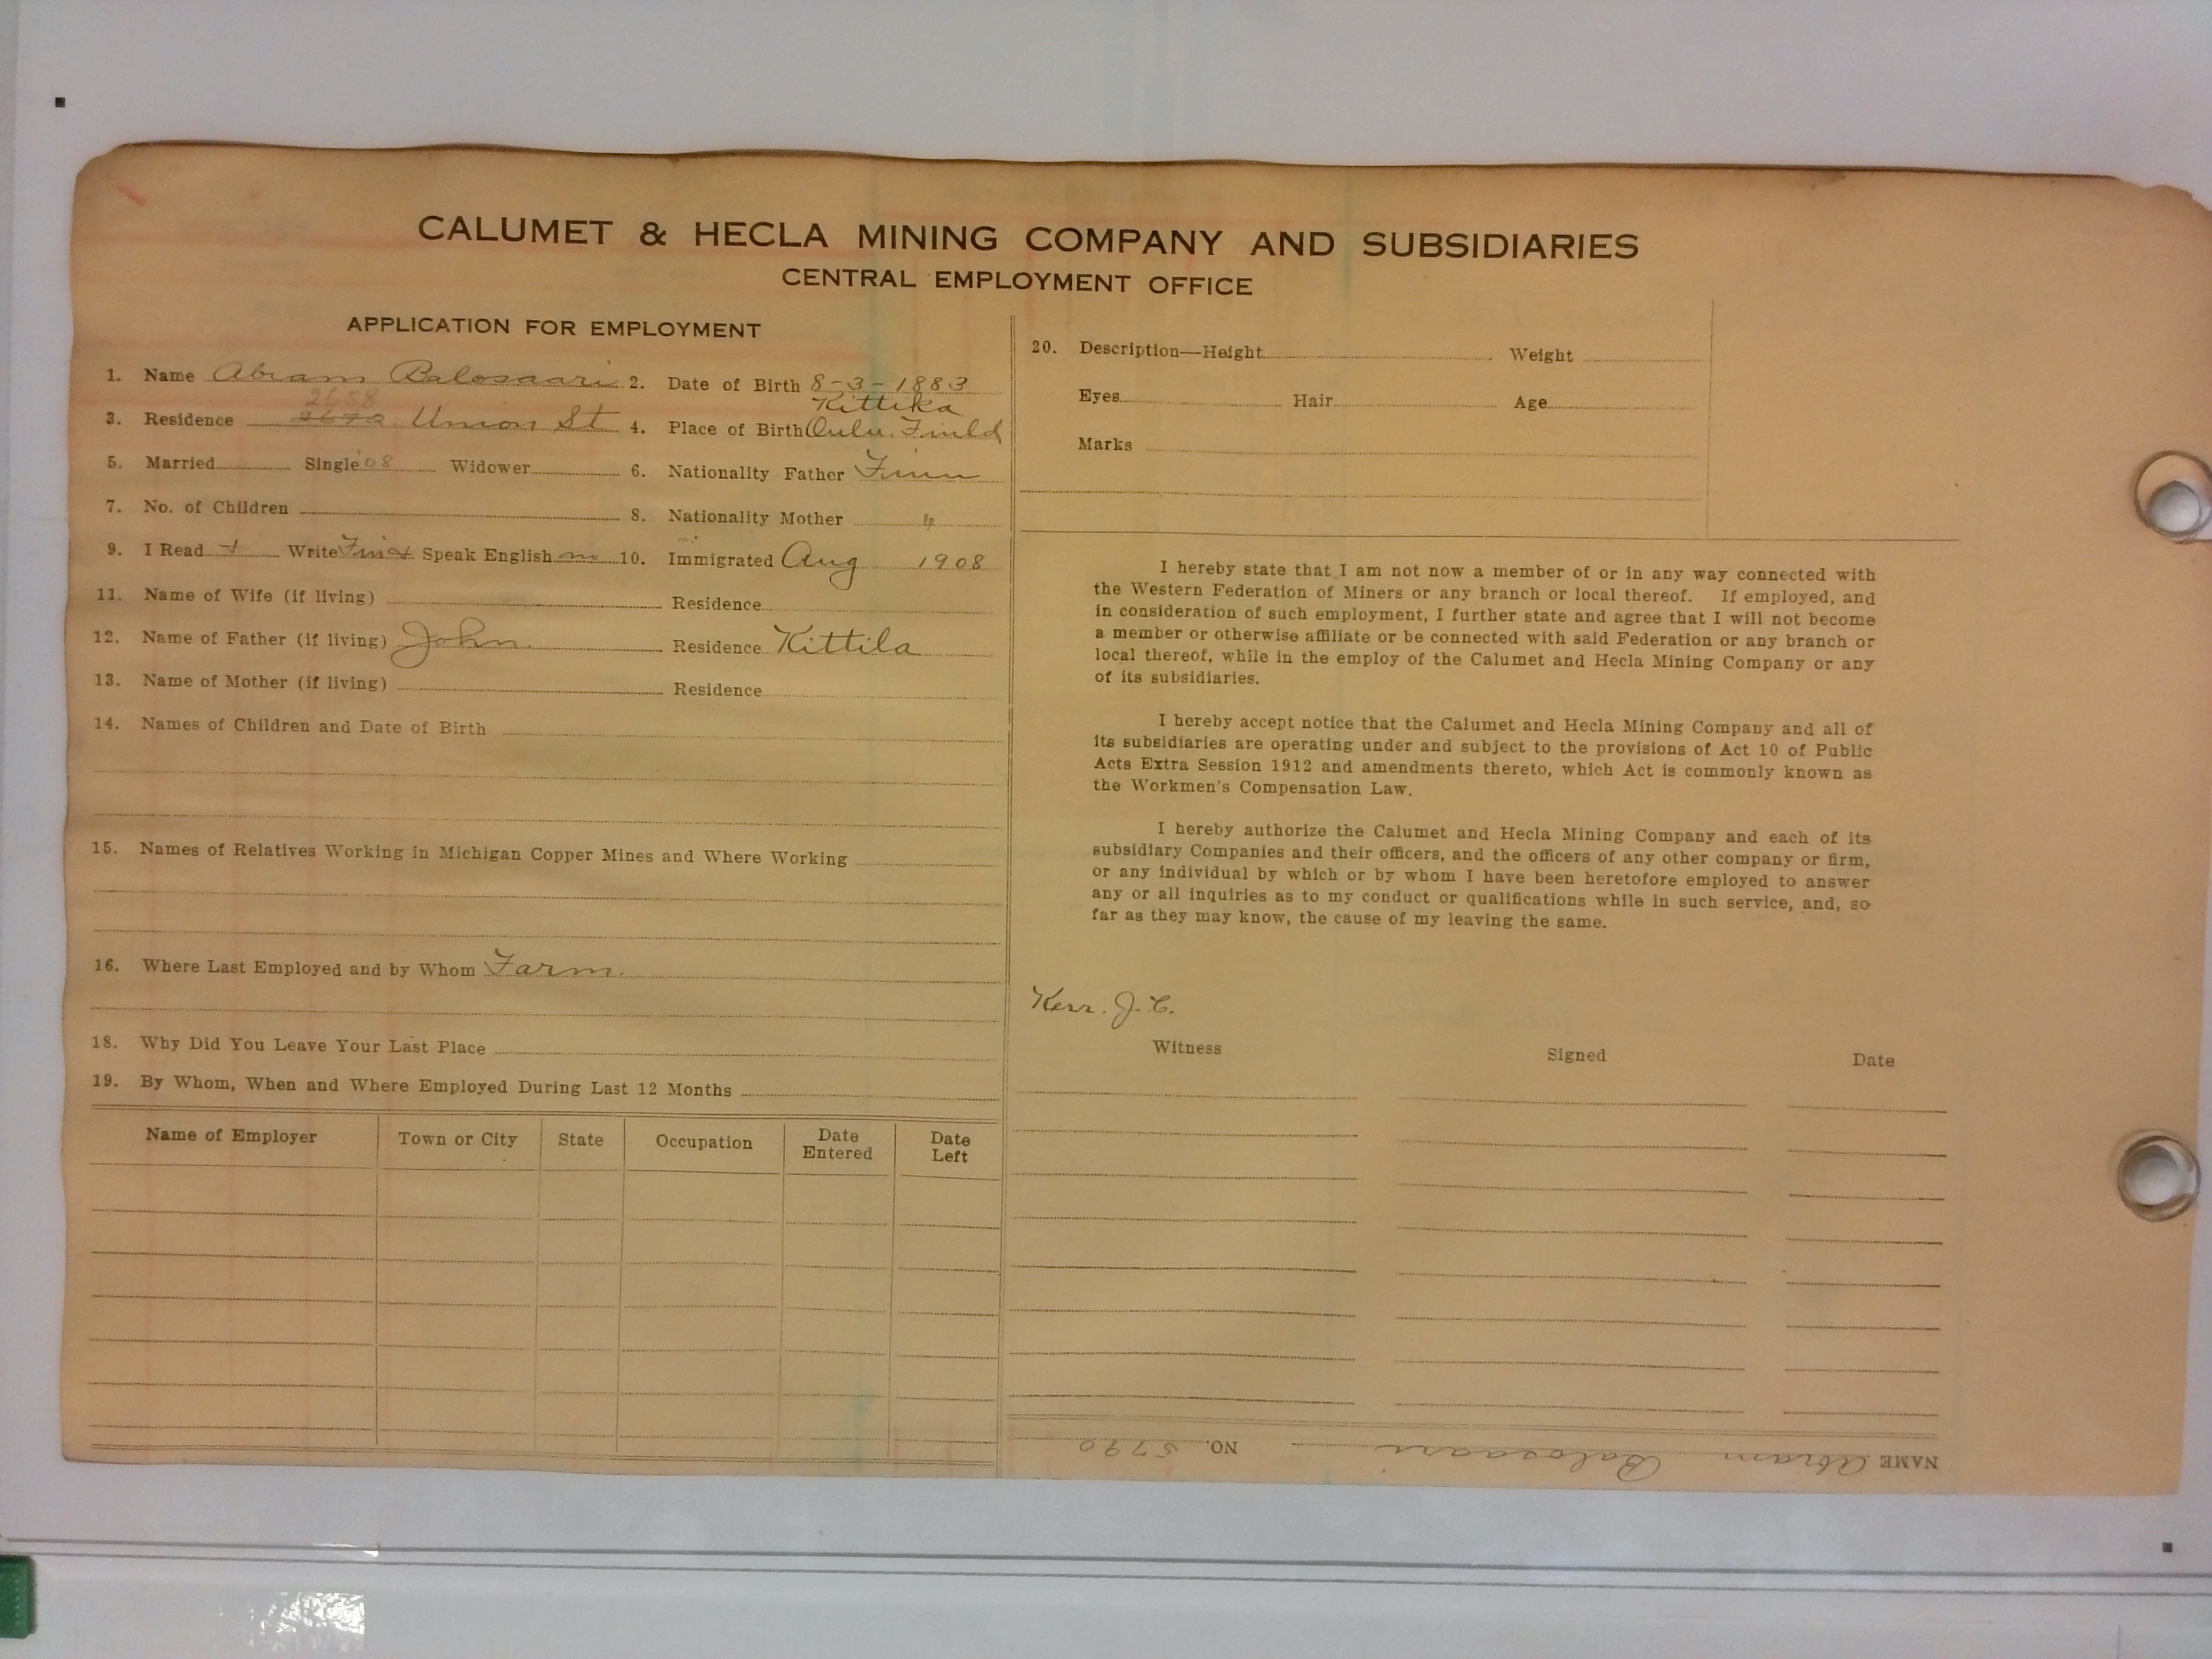 CALUMET & HECLA MINING COMPANY AND SUBSIDIARIES
CENTRAL EMPLOYMENT OFFICE
APPLICATION FOR EMPLOYMENT
1. Name Abram Balosaari 2. Date of Birth 8-3-1883
2658 Kittika
3. Residence 2672 Union St 4. Place of Birth Oulu. Finld
5. Married Single '08 Widower 6. Nationality Father Finn
7. No. of Children 8. Nationality Mother "
9. I Read + Write Fin + Speak English no 10. Immigrated Aug 1908
11. Name of Wife (if living) Residence
12. Name of Father (if living) John. Residence Kittila
13. Name of Mother (if living) Residence
14. Names of Children and Date of Birth
15. Names of Relatives Working in Michigan Copper Mines and Where Working
16. Where Last Employed and by Whom Farm.
18. Why Did You Leave Your Last Place
19. By Whom, When and Where Employed During Last 12 Months
Name of Employer Town or City State Occupation Date Entered Date Left
20. Description—Height Weight
Eyes Hair Age
Marks
I hereby state that I am not now a member of or in any way connected with
the Western Federation of Miners or any branch or local thereof. If employed, and
in consideration of such employment, I further state and agree that I will not become
a member or otherwise affiliate or be connected with said Federation or any branch or
local thereof, while in the employ of the Calumet and Hecla Mining Company or any
of its subsidiaries.
I hereby accept notice that the Calumet and Hecla Mining Company and all of
its subsidiaries are operating under and subject to the provisions of Act 10 of Public
Acts Extra Session 1912 and amendments thereto, which Act is commonly known as
the Workmen's Compensation Law.
I hereby authorize the Calumet and Hecla Mining Company and each of its
subsidiary Companies and their officers, and the officers of any other company or firm,
or any individual by which or by whom I have been heretofore employed to answer
any or all inquiries as to my conduct or qualifications while in such service, and, so
far as they may know, the cause of my leaving the same.
Kerr. J. C.
Witness Signed Date
NAME Abram Balosaari NO. 5790